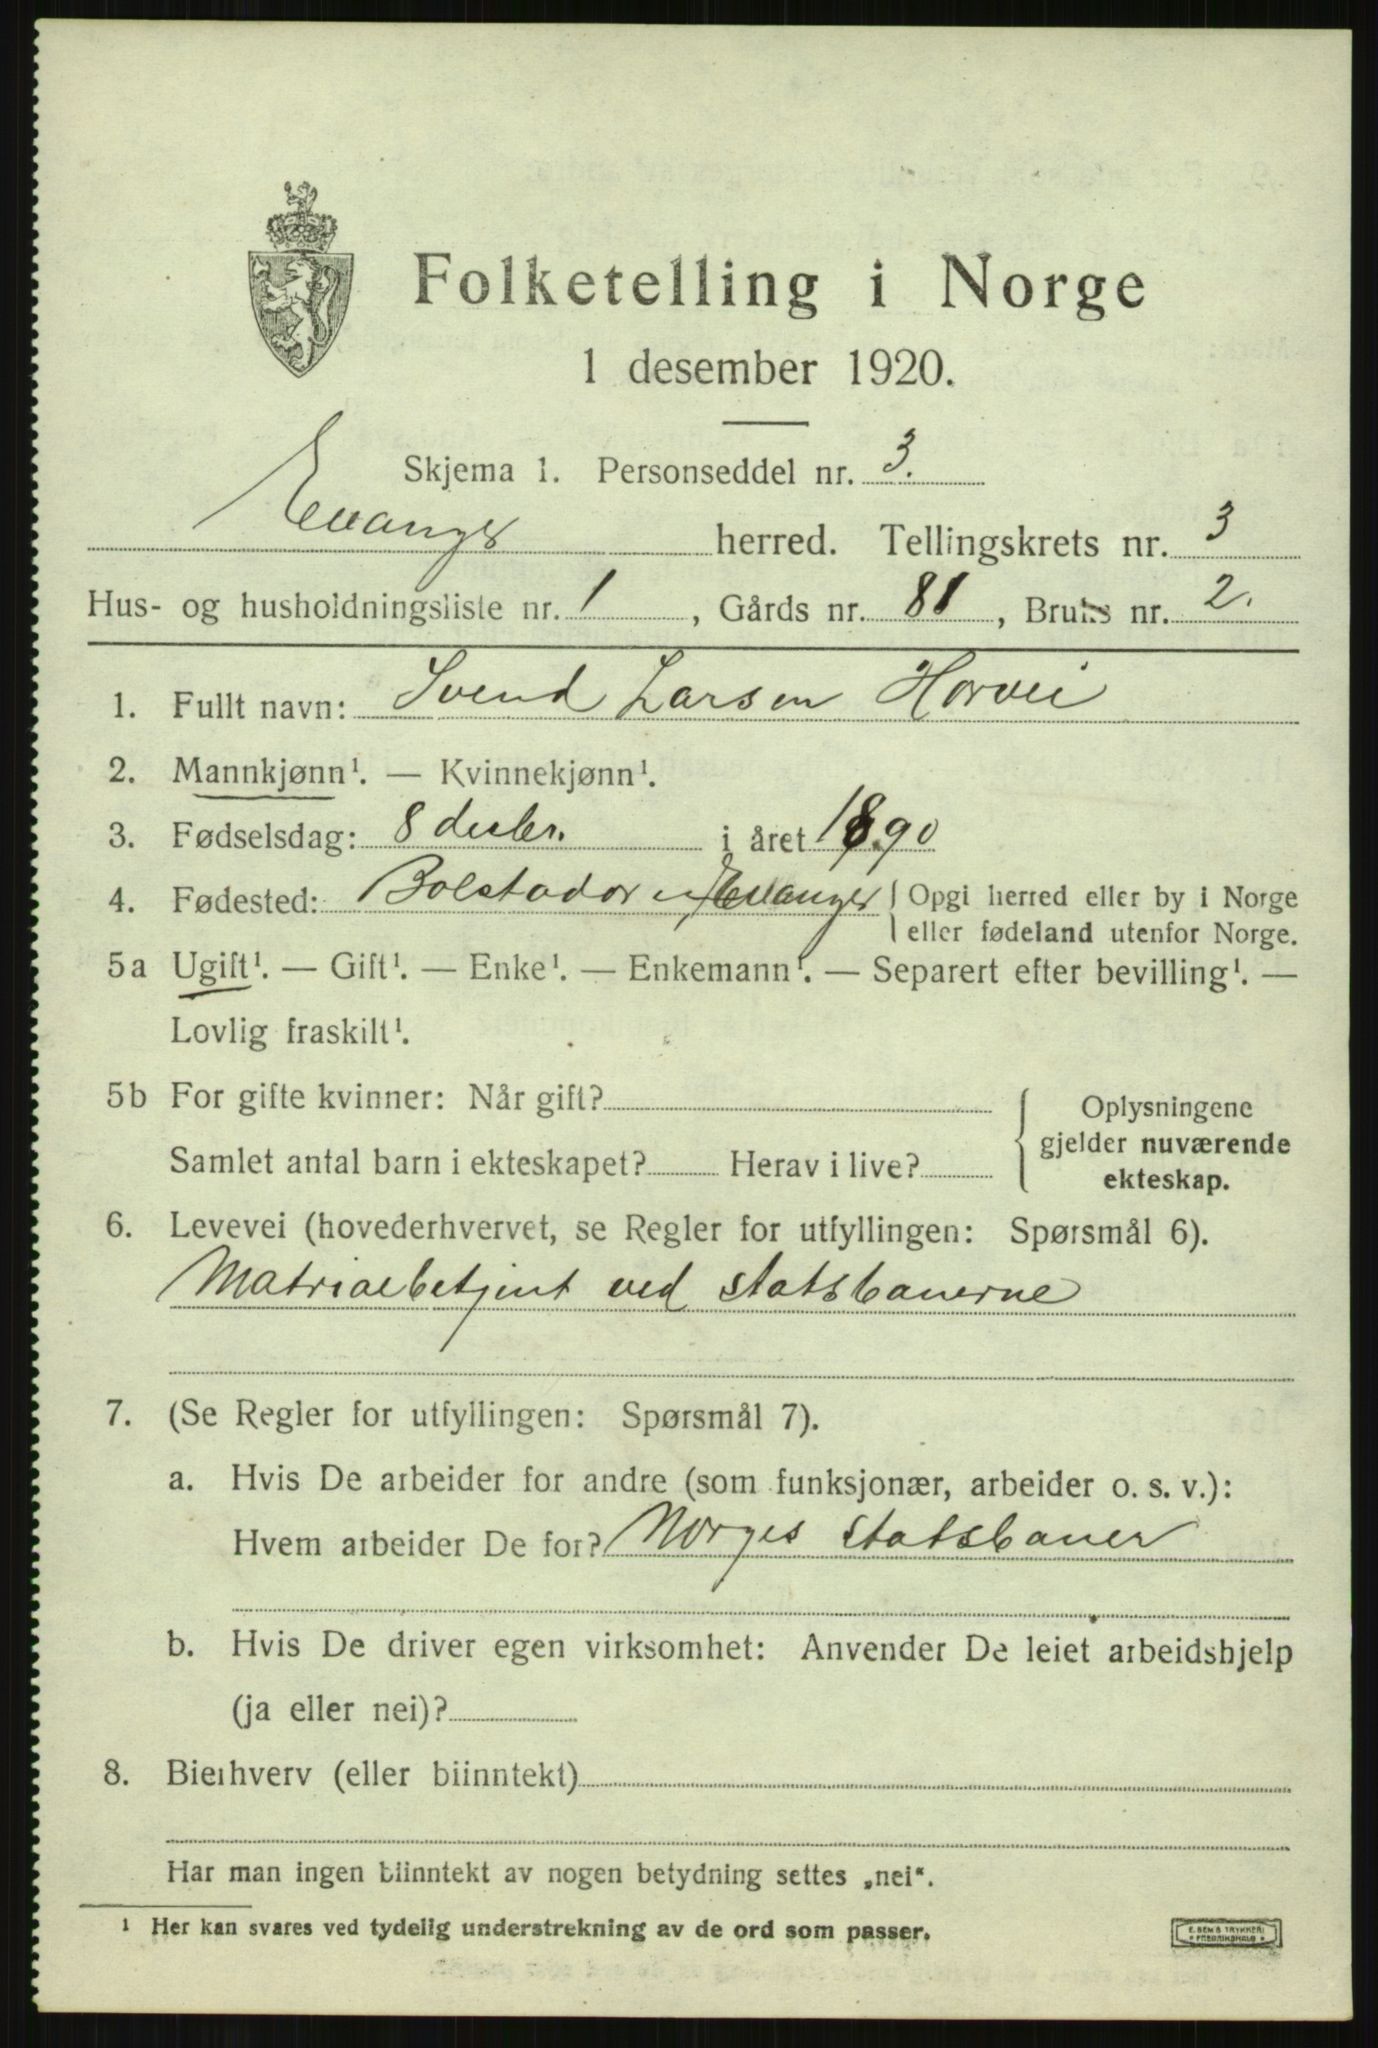 Folketelling i Norge
1 desember 1920.
Skjema 1. Personseddel nr. 3.
Evanger herred. Tellingskrets nr. 3
Hus- og husholdningsliste nr. 1, Gårds nr. 81, Bruks nr. 2.
1. Fullt navn: Svend Larsen Horvei
2. Mannkjønn¹. — Kvinnekjønn¹.
3. Fødselsdag: 8 desbr. i året 1890
4. Fødested: Bolstadør Evanger { Opgi herred eller by i Norge
eller fødeland utenfor Norge.
5a Ugift¹. — Gift¹. — Enke¹. — Enkemann¹. — Separert efter bevilling¹. —
Lovlig fraskilt¹.
5b For gifte kvinner: Når gift?
Samlet antal barn i ekteskapet? Herav i live?
Oplysningene
gjelder nuværende
ekteskap.
6. Levevei (hovederhvervet, se Regler for utfyllingen: Spørsmål 6).
Matrialbetjent ved statsbanerne
7. (Se Regler for utfyllingen: Spørsmål 7).
a. Hvis De arbeider for andre (som funksjonær, arbeider o. s. v.):
Hvem arbeider De for? Norges statsbaner
b. Hvis De driver egen virksomhet: Anvender De leiet arbeidshjelp
(ja eller nei)?
8. Bierhverv (eller biinntekt)
Har man ingen biinntekt av nogen betydning settes „nei“.
¹ Her kan svares ved tydelig understrekning av de ord som passer.